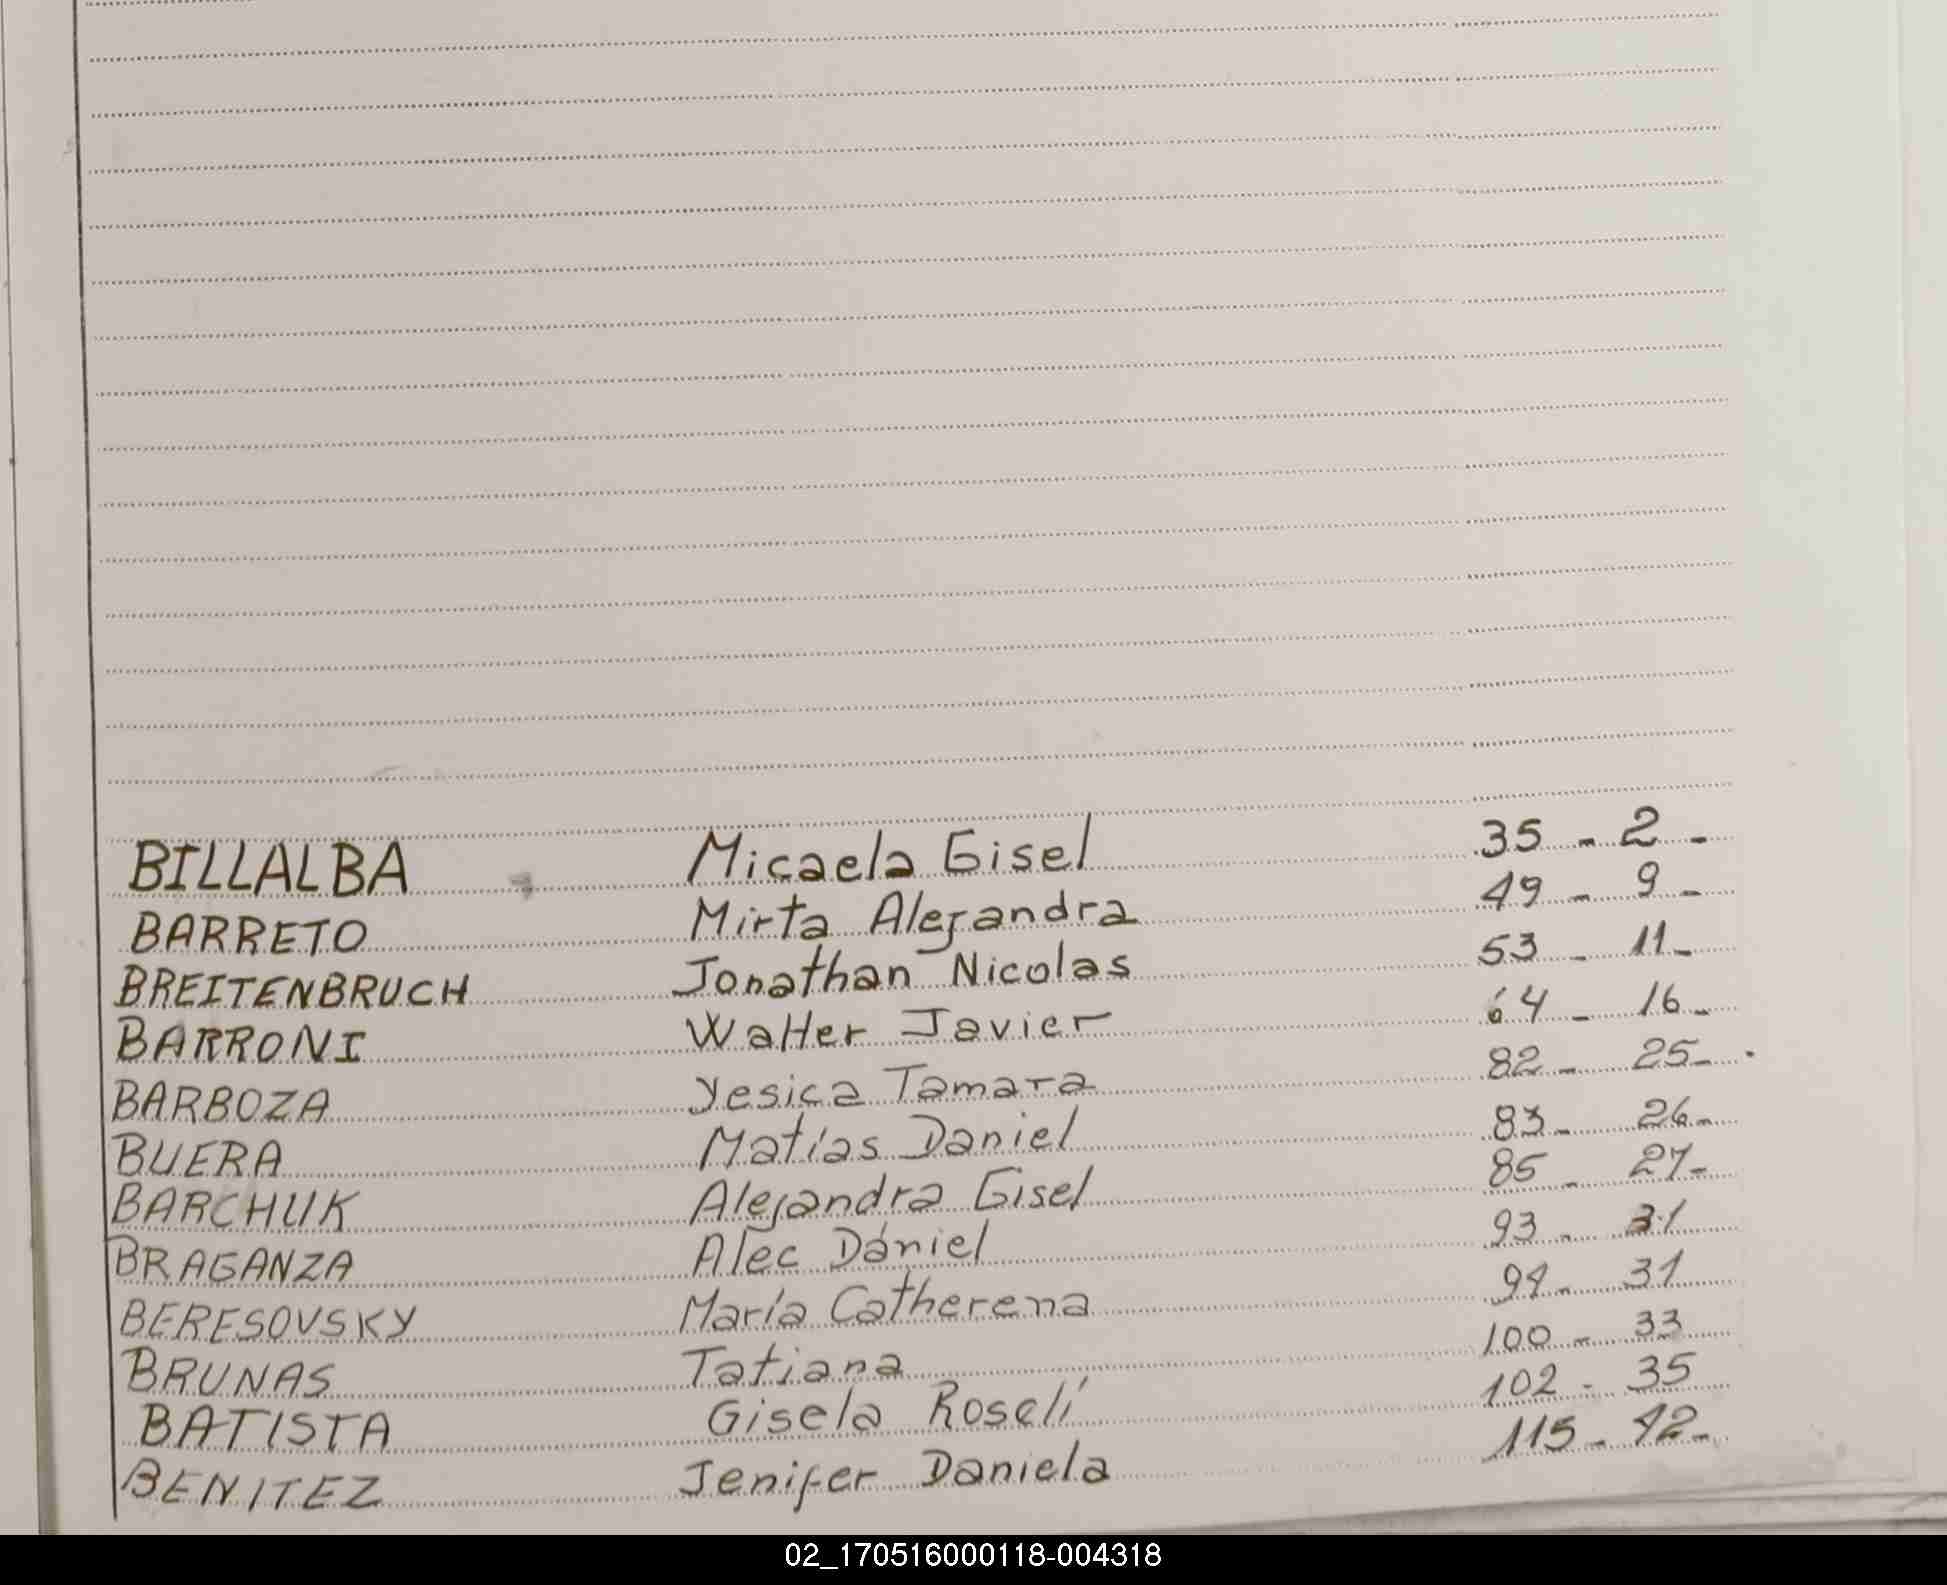 BILLALBA Micaela Gisel 35 - 2 -
BARRETO Mirta Alejandra 49 - 9 -
BREITENBRUCH Jonathan Nicolas 53 - 11 -
BARRONI Walter Javier 64 - 16 -
BARBOZA Yesica Tamara 82 - 25 - .
BUERA Matías Daniel 83 - 26 -
BARCHUK Alejandra Gisel 85 - 27 -
BRAGANZA Alec Dániel 93 - 31
BERESOVSKY María Catherena 94 - 31
BRUNAS Tatiana 100 - 33
BATISTA Gisela Roselí 102 - 35
BENITEZ Jenifer Daniela 115 - 42 -
02_170516000118-004318